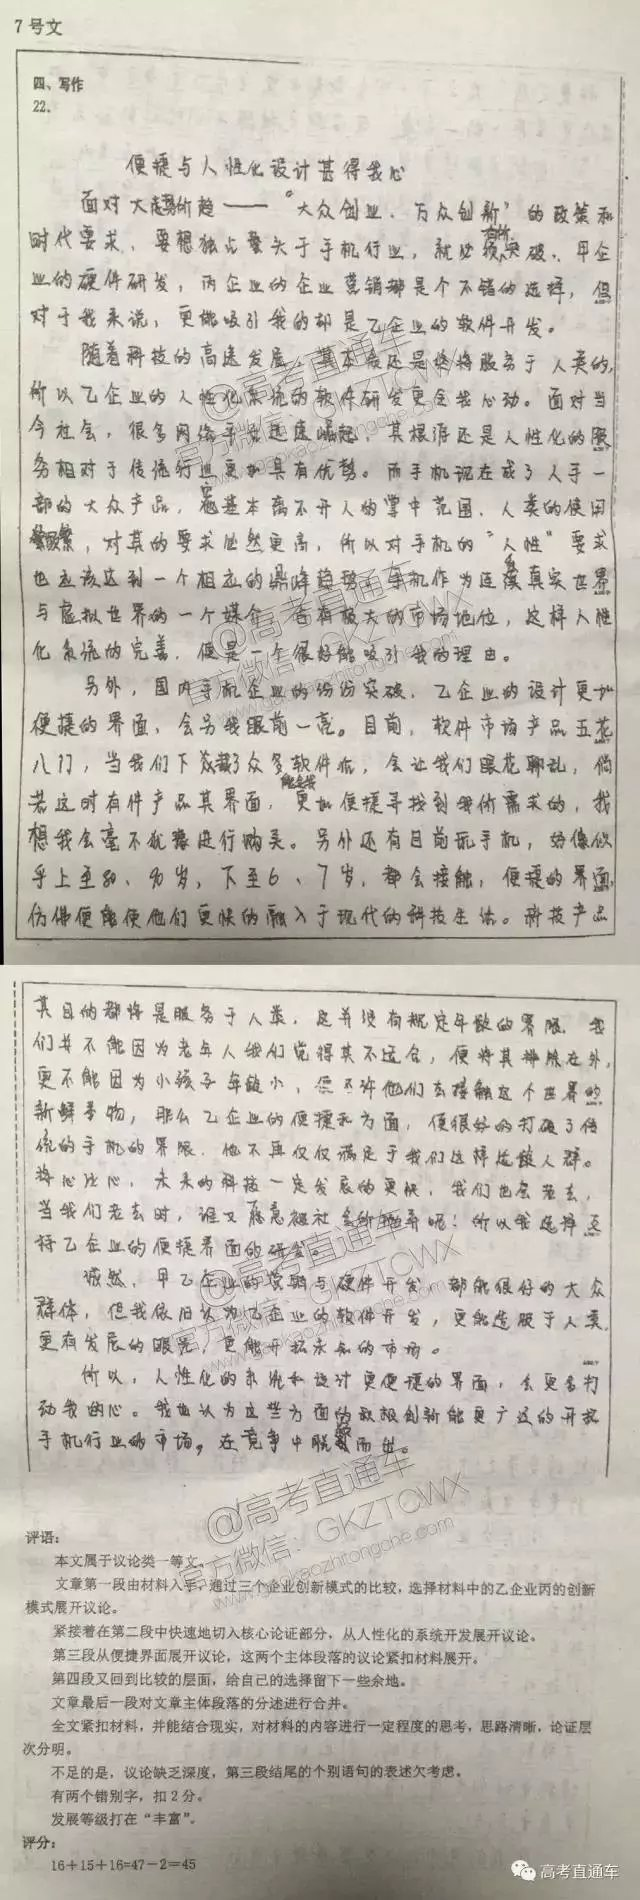 7号文
四、写作
22.
便捷与人性化设计甚得我心
面对大趋所趋——“大众创业、万众创新”的政策和
时代要求,要想独占鳌头于手机行业,就必须有所突破。甲企
业的硬件研发,丙企业的企业营销都是个不错的选择,但
对于我来说,更能吸引我的却是乙企业的软件开发。
随着科技的高速发展,其本质还是终将服务于人类的,
所以乙企业的人性化系统的软件研发更会我心动。面对当
今社会,很多网络平台迅速崛起,其根源还是人性化的服
务相对于传统行业更加具有优势。而手机现在成了人手一
部的大众产品,它基本离不开人的掌中范围,人类的使用
繁,对其的要求必然更高,所以对手机的“人性”要求
也应该达到一个相应的鼎峰趋势。手机作为连接真实世界
与虚拟世界的一个媒介,含有极大的市场地位,这样人性
化系统的完善,便是一个很好能吸引我的理由。
另外,国内手机企业的纷纷突破,乙企业的设计更加
便捷的界面,会另我眼前一亮。目前,软件市场产品五花
八门,当我们下载了众多软件后,会让我们眼花聊乱,倘
若这时有件产品其界面,能会我更加便捷寻找到我所需求的,我
想我会毫不犹豫进行购买。另外还有目前玩手机,好像似
乎上至80、90岁,下至6、7岁,都会接触,便捷的界面,
仿佛便能使他们更快的融入于现代的科技生活。科技产品
其目的都将是服务于人类,这并没有规定年龄的界限,我
们并不能因为老年人我们觉得其不适合,便将其排除在外,
更不能因为小孩子年龄小,不许他们去接触这个世界的
新鲜事物,那么乙企业的便捷和方面,便很好的打破了传
统的手机的界限,他不再仅仅满足于我们这样些人群。
将心比心,未来的科技一定发展的更快,我们也会老去,
当我们老去时,谁又愿意被社会所抛弃呢!所以我选择支
持乙企业的便捷界面的研发。
诚然,甲乙企业的营销与硬件开发,都能很好的大众
群体,但我依旧认为乙企业的软件开发,更能造服于人类,
更有发展的眼光,更能开拓未知的市场。
所以,人性化的系统和设计更便捷的界面,会更多打
动我的心。我也认为这些方面的积极创新能更广泛的开拓
手机行业的市场,在竞争中脱颖而出。
评语:
本文属于议论类一等文。
文章第一段由材料入手,通过三个企业创新模式的比较,选择材料中的乙企业丙的创新
模式展开议论。
紧接着在第二段中快速地切入核心论证部分,从人性化的系统开发展开议论。
第三段从便捷界面展开议论,这两个主体段落的议论紧扣材料展开。
第四段又回到比较的层面,给自己的选择留下一些余地。
文章最后一段对文章主体段落的分述进行合并。
全文紧扣材料,并能结合现实,对材料的内容进行一定程度的思考,思路清晰,论证层
次分明。
不足的是,议论缺乏深度,第三段结尾的个别语句的表述欠考虑。
有两个错别字,扣2分。
发展等级打在“丰富”。
评分:
16+15+16=47-2=45
@高考直通车
官方微信:GKZTCWX
www.gaokaozhitongche.com
高考直通车